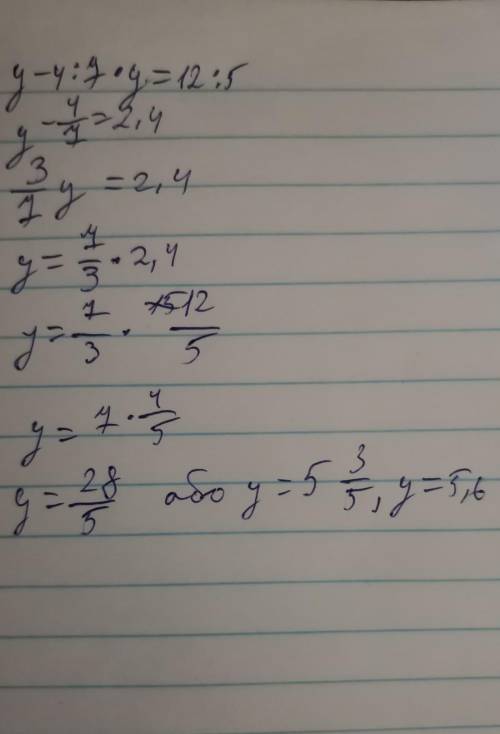 y - 4 : 7 · y = 12 : 5
y - 4/7 = 2,4
3/7 y = 2,4
y = 7/3 · 2,4
y = 7/3 · 12/5
y = 7 · 4/5
y = 28/5 або y = 5 3/5, y = 5,6